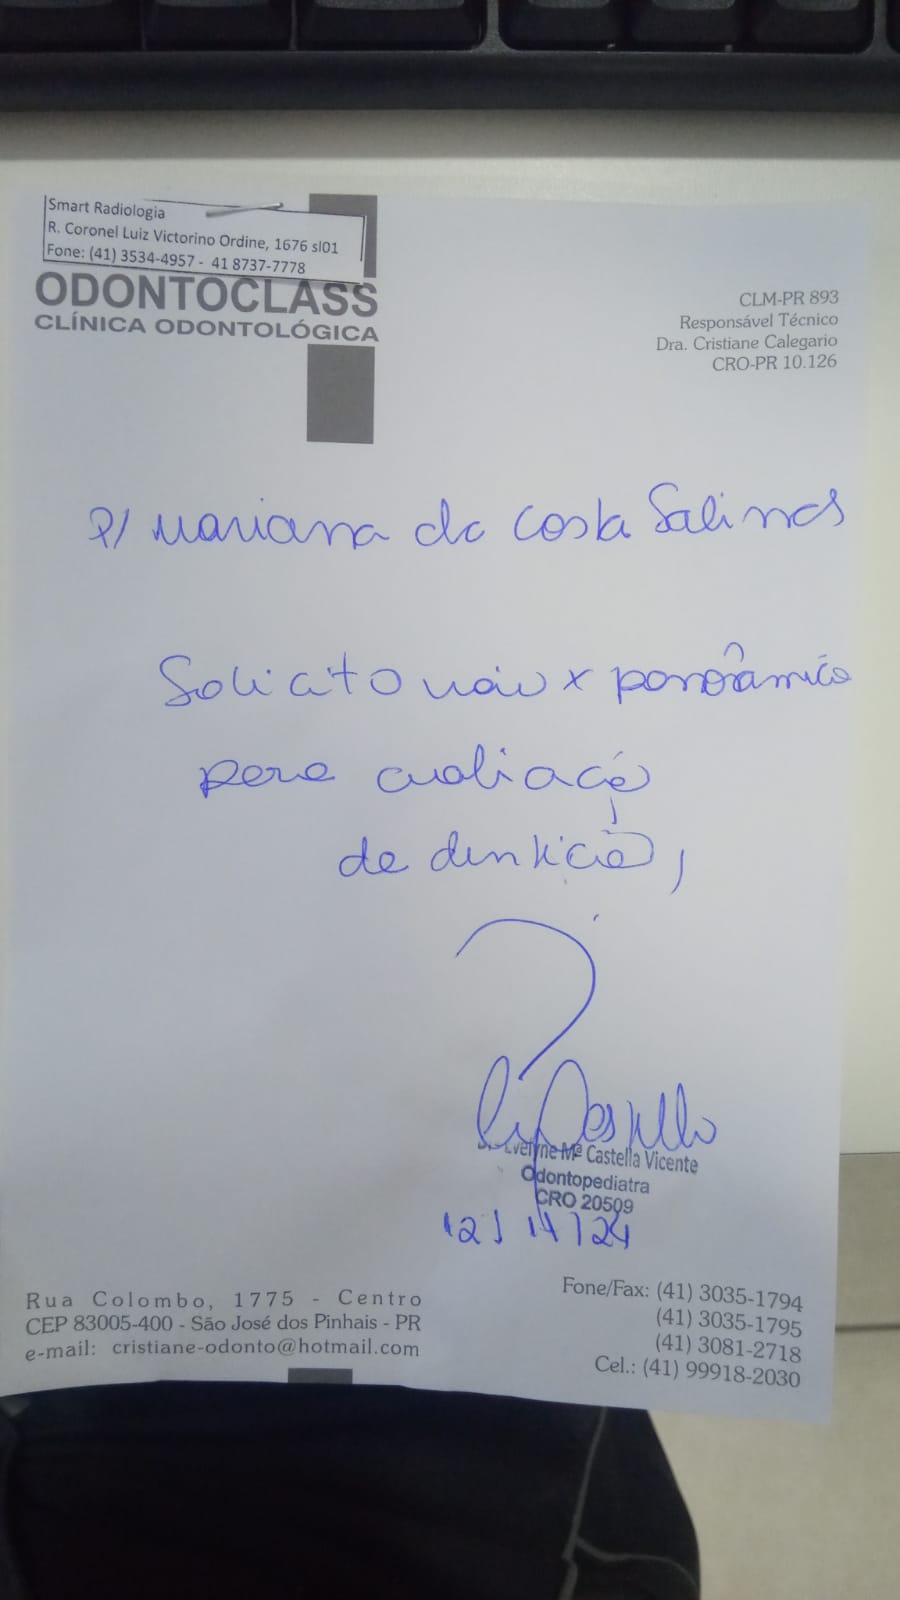 Smart Radiologia
R. Coronel Luiz Victorino Ordine, 1676 sl01
Fone: (41) 3534-4957 - 41 8737-7778
ODONTOCLASS
CLÍNICA ODONTOLÓGICA
CLM-PR 893
Responsável Técnico
Dra. Cristiane Calegario
CRO-PR 10.126
P/ Mariana da Costa Salinas
Solicito raio x panorâmico
para avaliação
de dentição,
Evelyne Mª Castella Vicente
Odontopediatra
CRO 20509
12/11/24
Rua Colombo, 1775 - Centro
CEP 83005-400 - São José dos Pinhais - PR
e-mail: cristiane-odonto@hotmail.com
Fone/Fax: (41) 3035-1794
(41) 3035-1795
(41) 3081-2718
Cel.: (41) 99918-2030